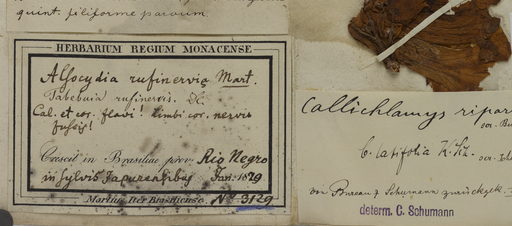 quint. filiforme parvum.
HERBARIUM REGIUM MONACENSE.
Alsocydia rufinervia Mart.
Tabebuia rufinervis. &c.
Cal. et cor. flavi! limbi cor. nervis
fuscis!
Crescit in Brasiliae prov. Rio Negro
in sylvis Japurensibus Jan. 1829
Martius Iter Brasiliense. No 3129
Callichlamys ripar
var. Bu
C. latifolia K. Sch.
von Bureau & Schumann zurückgek.
determ. C. Schumann